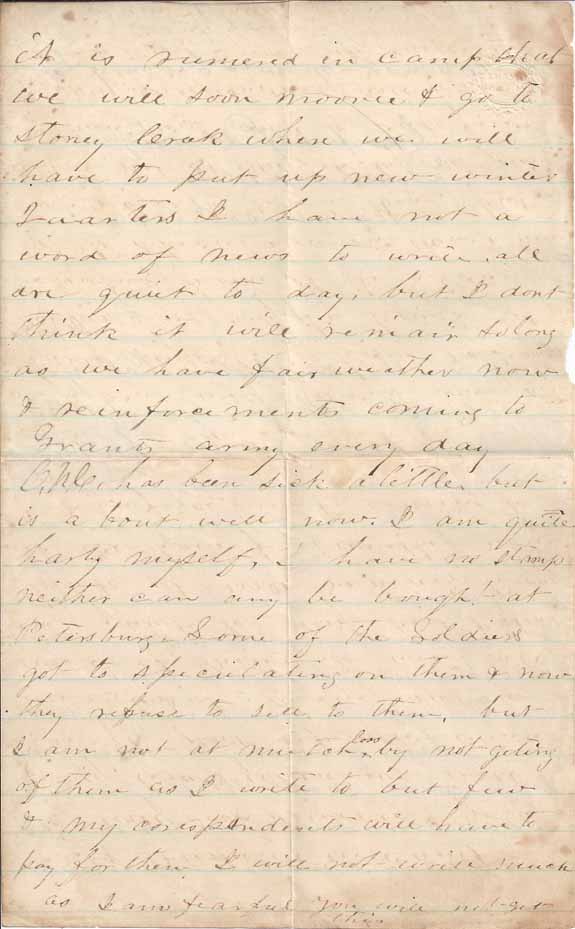 it is rumered in camp that
we will soon moove & go to
Stoney Creek where we will
have to put up new winter
Quarters I have not a
word of news to write. all
are quiet to day, but I dont
think it will remain so long
as we have fair weather now
& reinforcements coming to
Grants army every day
has been sick a little but
is a bout well now. I am quite
harty myself, I have no stamp
neither can any be bought at
Petersburg. Some of the Soldiers
got to speculating on them & now
they refuse to sell to them, but
I am not at mutch loss by not geting
of them as I write to but few
& my corespondents will have to
pay for them I will not write much
as I am fearful you will not get
this